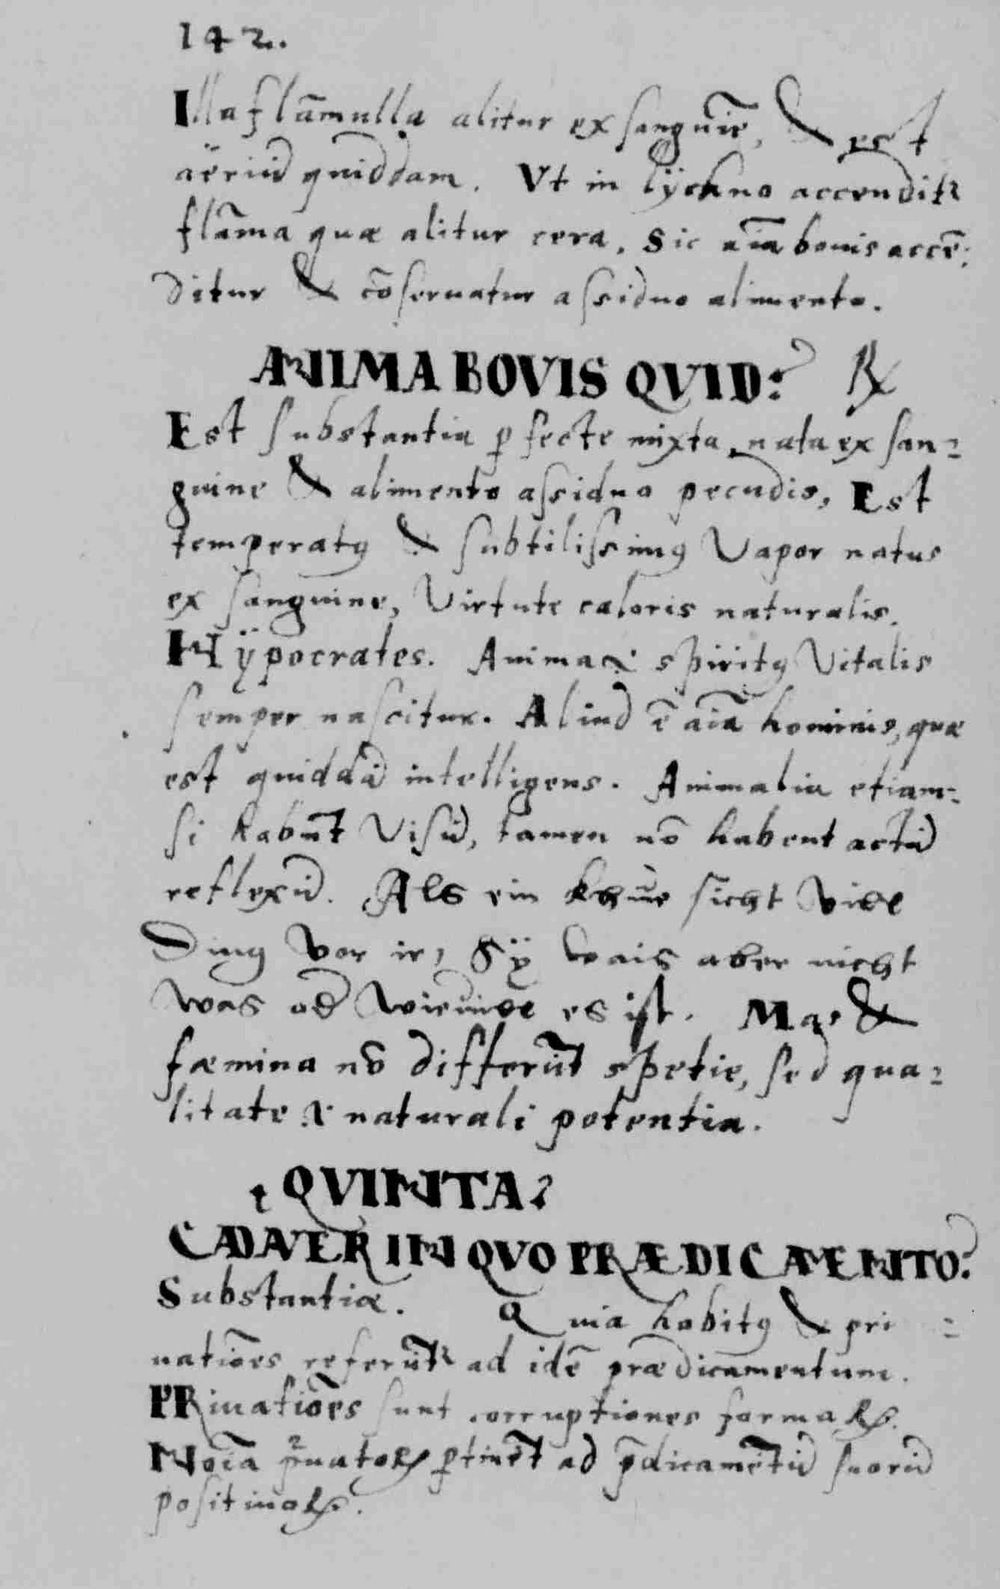 142.
Illa flāmulla alitur ex sanguīe, & est
aëriū quiddam. Vt in lÿchno accenditr
flāma quæ alitur cera. Sic aīa bouis accē:
ditur & cōseruatur assiduo alimento.
ANIMA BOVIS QVID? ℞
Est substantia ꝑfecte mixta, nata ex san=
guine & alimento assiduo pecudis, Est
temperatꝰ & subtilissimꝰ Vapor natus
ex sanguine, Virtute caloris naturalis.
HÿpocratES. Anima & spiritꝰ Vitalis
semper nascitur. Aliud ē aīa hominis, quæ
est quiddā intelligens. Animalia etiam=
si habūt Visū, tamen nō habent actū
reflexū. Als ein khüe sicht viel
Ding vor ir, Sÿ wais aber nicht
was od wieuiel es ist. Mas &
fæmina nō differūt spetie, sed qua=
litate & naturali potentia.
QVINTA?
CADAVER IN QVO PRÆDICAMENTO?
Substantiæ. Quia habitꝰ & pri=
uatiōes referūtr ad idē prædicamentum.
PRiuatiōes sunt corruptiones formaꝝ.
Noīa pͥuatoꝝ ꝑtinēt ad p̄dicamētū suorū
positiuoꝝ.